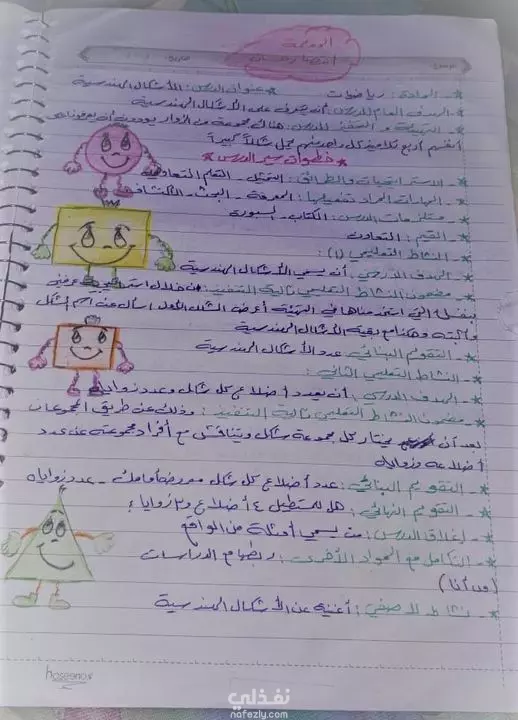 الوحدة
* - المادة: رياضيات * عنوان الدرس: الأشكال الهندسية
* - الهدف العام للدرس: أن يتعرف على الأشكال الهندسية
* - التهيئة و التحفيز للدرس: هنالك مجموعة من الزوار يودون أن
أنفسهم أربع تلاميذ كل واحد منهم يحمل شكلاً كبيراً
* خطوات سير الدرس *
* - الاستراتيجيات والطرائق: التمثيل - التعلم التعاوني
* - المهارات المراد تنميتها: المعرفة - البحث - الاكتشاف
* - مستلزمات الدرس: الكتاب - السبورة
* - القيم: التعاون
* - النشاط التعليمي (١):
* - الهدف الدرسي: أن يسمي الأشكال الهندسية
* - مضمون النشاط التعليمي وآلية التنفيذ: من خلال
التي استخدمناها في التهيئة أعرض الشكل الأول أسأل عن اسم الشكل
وأكتبه وهكذا مع بقية الأشكال الهندسية
* - التقويم البنائي: عدد الأشكال الهندسية
* - النشاط التعليمي الثاني:
* - الهدف الدرسي: أن يعدد أضلاع كل شكل وعدد زواياه
* - مضمون النشاط التعليمي وآلية التنفيذ: وذلك عن طريق المجموعات
بعد أن يختار كل مجموعة شكل ويتناقش مع أفراد مجموعته عن عدد
أضلاعه وزواياه
* - التقويم البنائي: عدد أضلاع كل شكل معروض أمامك - عدد زواياه
* - التقويم النهائي: هل للمستطيل ٤ أضلاع و٣ زوايا؟
* - إغلاق الدرس: من يسمي أمثلة من الواقع
* - التكامل مع المواد الأخرى: الدراسات
(من أنا)
* - نشاط لا صفي: أغنية عن الأشكال الهندسية
hoseenos
نفذلي
nafezly.com